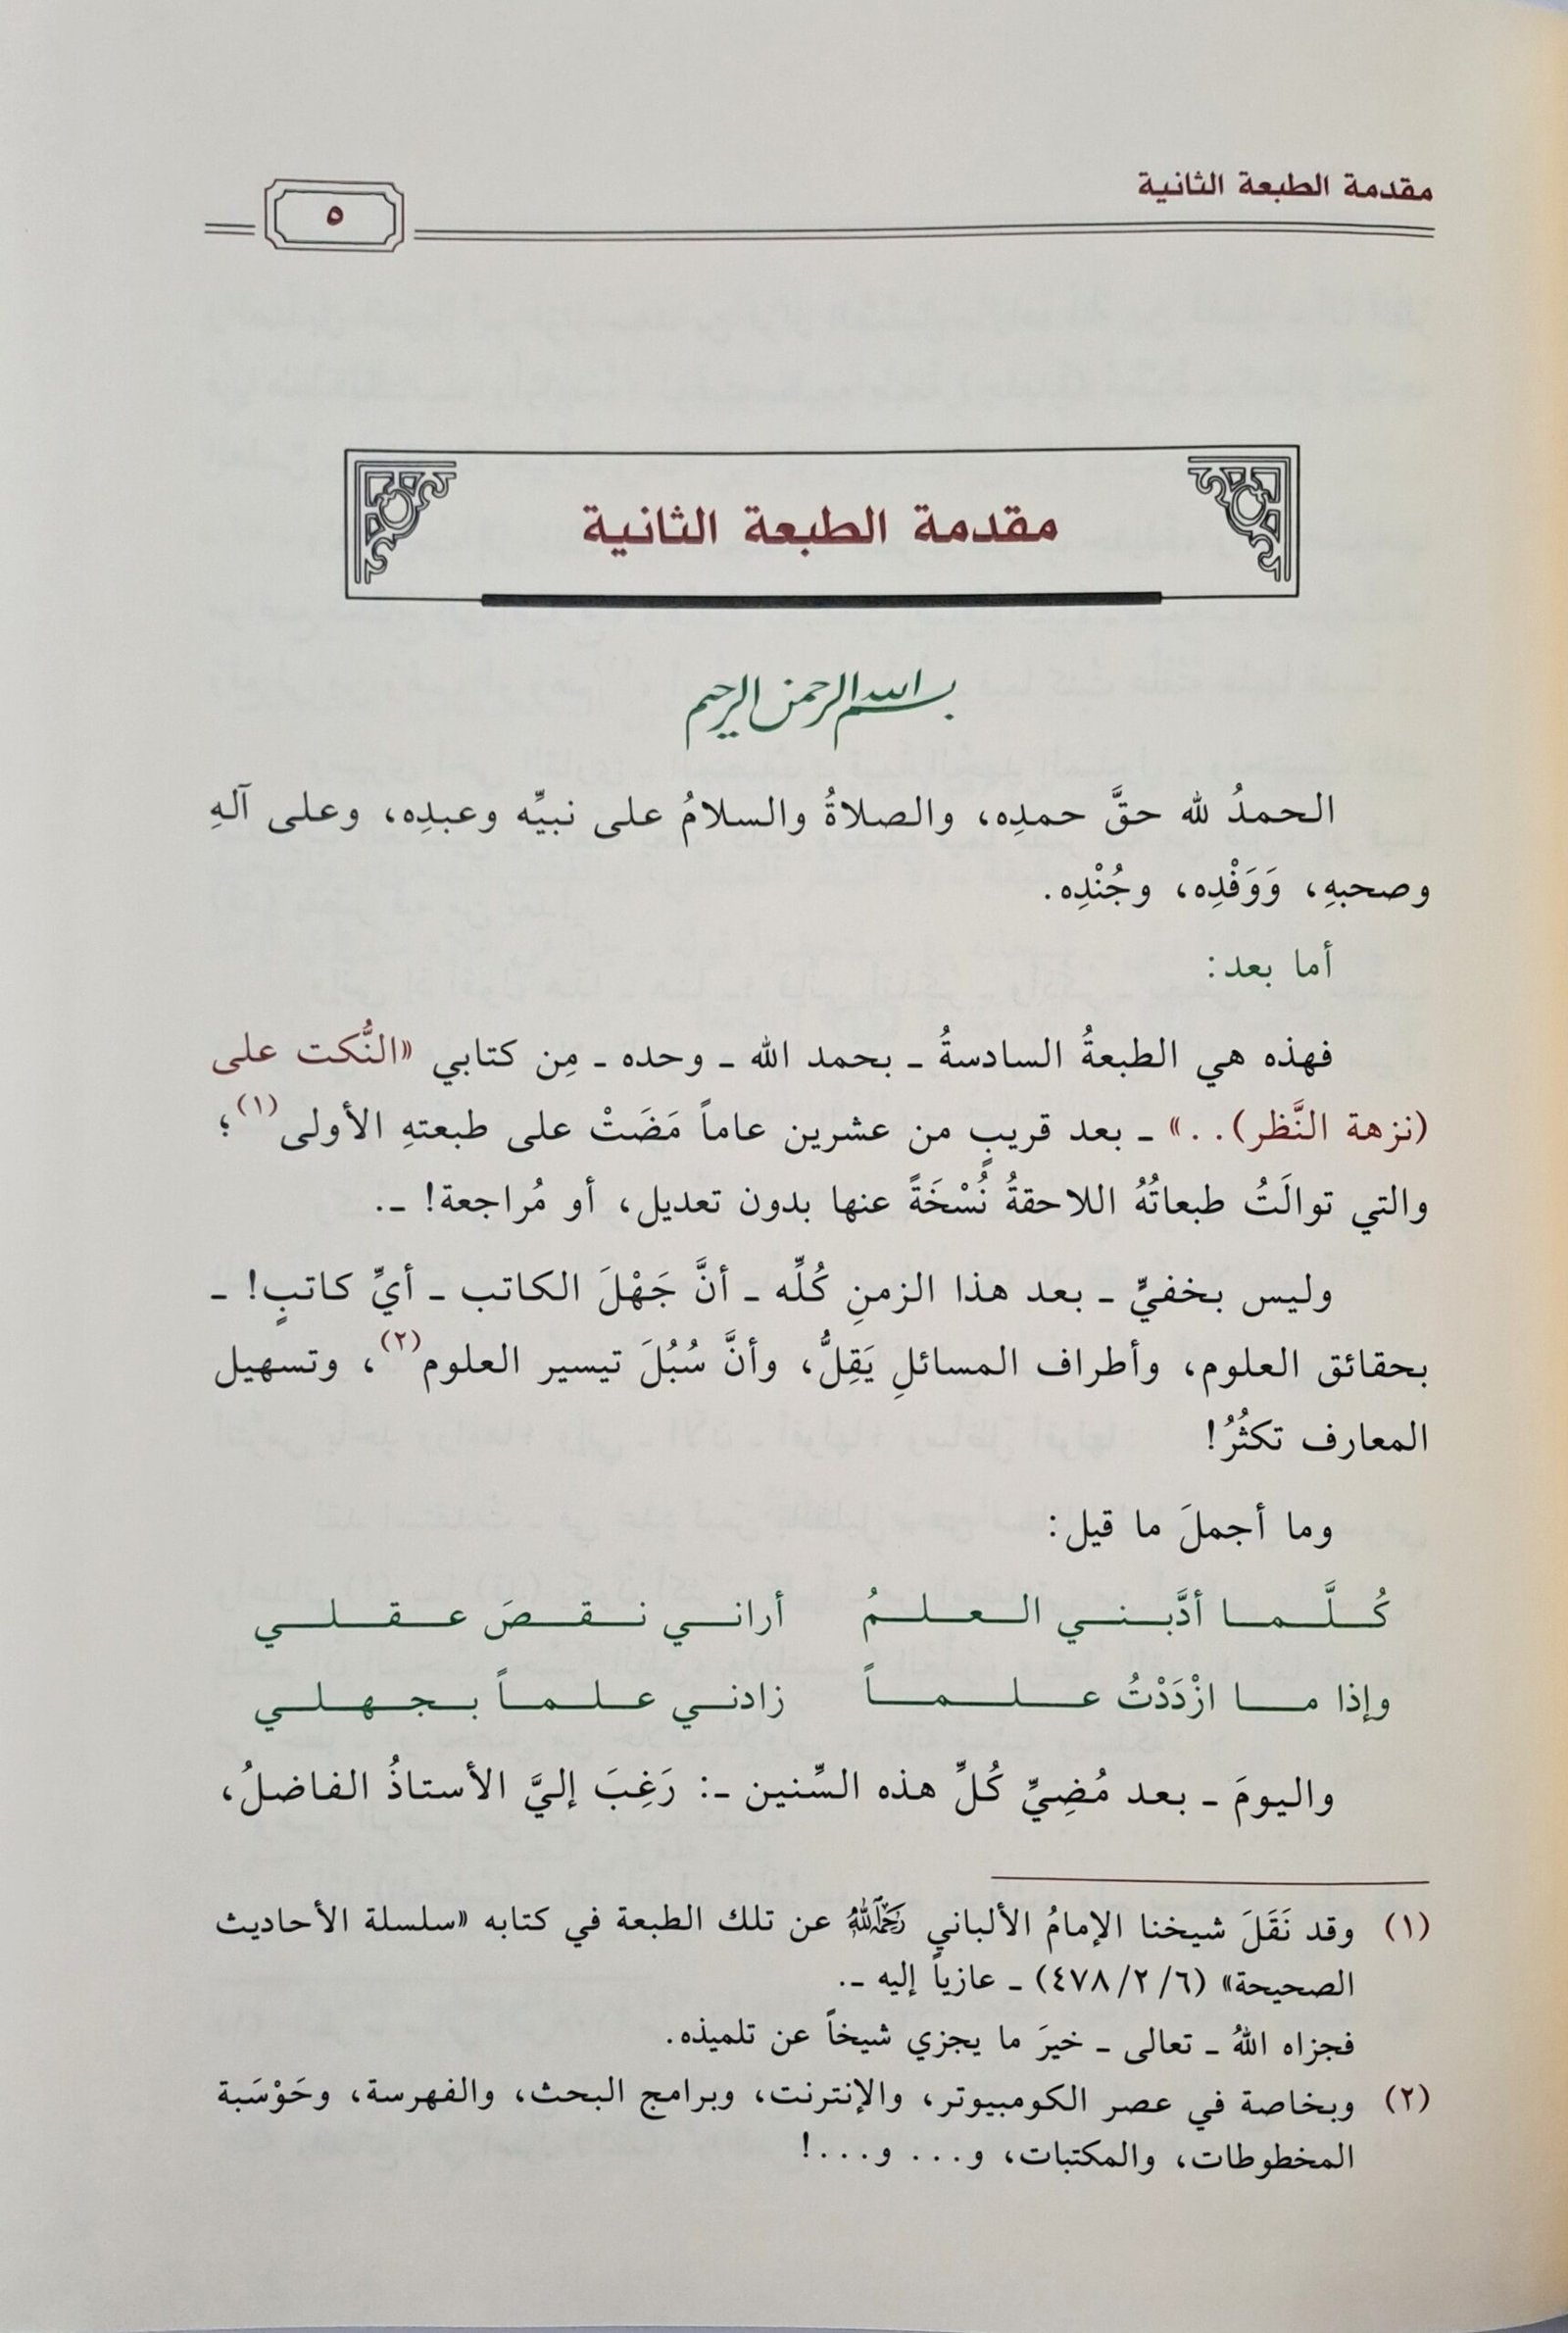 مقدمة الطبعة الثانية
٥
مقدمة الطبعة الثانية
بسم الله الرحمن الرحيم
الحمدُ لله حقَّ حمدِه، والصلاةُ والسلامُ على نبيِّه وعبدِه، وعلى آلهِ
وصحبهِ، وَوَفْدِه، وجُنْدِه.
أما بعد:
فهذه هي الطبعةُ السادسةُ ـ بحمد الله ـ وحده ـ مِن كتابي «النُّكت على
(نزهة النَّظر)..» ـ بعد قريبٍ من عشرين عاماً مَضَتْ على طبعتهِ الأولى(١)؛
والتي توالَتُ طبعاتُهُ اللاحقةُ نُسْخَةً عنها بدون تعديل، أو مُراجعة! ـ.
وليس بخفيٍّ ـ بعد هذا الزمنِ كُلِّه ـ أنَّ جَهْلَ الكاتب ـ أيِّ كاتبٍ! ـ
بحقائق العلوم، وأطراف المسائلِ يَقِلُّ، وأنَّ سُبُلَ تيسير العلوم(٢)، وتسهيل
المعارف تكثُرُ!
وما أجملَ ما قيل:
كُلَّما أدَّبني العلمُ أراني نقصَ عقلي
وإذا ما ازْدَدْتُ علماً زادني علماً بجهلي
واليومَ ـ بعد مُضِيِّ كُلِّ هذه السِّنين ـ: رَغِبَ إليَّ الأستاذُ الفاضلُ،
(١) وقد نَقَلَ شيخنا الإمامُ الألباني رَحِمَهُ اللهُ عن تلك الطبعة في كتابه «سلسلة الأحاديث
الصحيحة» (٦/ ٢/ ٤٧٨) ـ عازياً إليه ـ.
فجزاه اللهُ ـ تعالى ـ خيرَ ما يجزي شيخاً عن تلميذه.
(٢) وبخاصة في عصر الكومبيوتر، والإنترنت، وبرامج البحث، والفهرسة، وحَوْسَبة
المخطوطات، والمكتبات، و... و...!